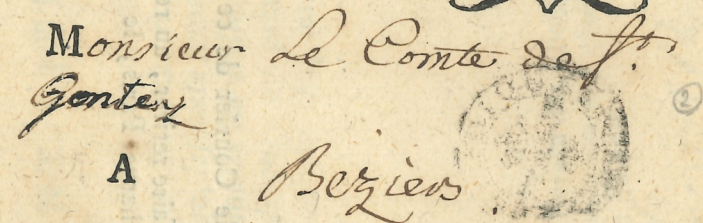 Monsieur Le Comte de St.
Gontez
A Beziers
2